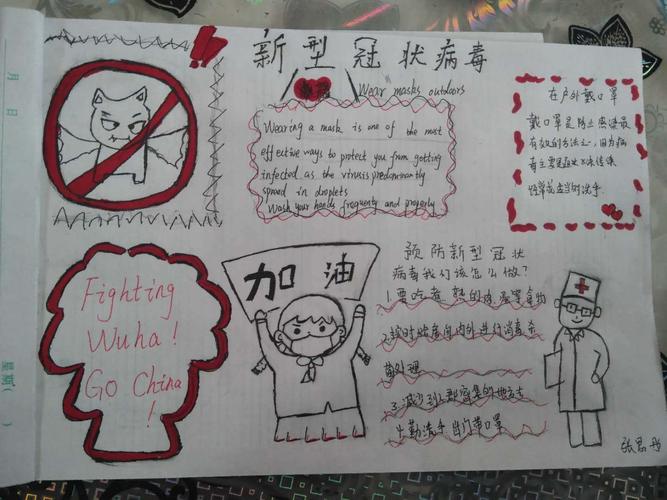 新型冠状病毒
Wear masks outdoors
Wearing a mask is one of the most
effective ways to protect you from getting
infected as the virus is predominantly
spread in droplets
Wash your hands frequently and properly
在户外戴口罩
戴口罩是防止感染最
有效的方法之一,因为病
毒主要是通过飞沫传染
经常或适当的洗手
Fighting
Wuha!
Go China
!
加油
预防新型冠状
病毒我们该怎么做?
1.要吃煮熟的肉蛋等食物
2.按时给屋内外进行消毒杀
菌处理
3.减少到人群密集的地方去
4.勤洗手出门带口罩
月 日
星期( )